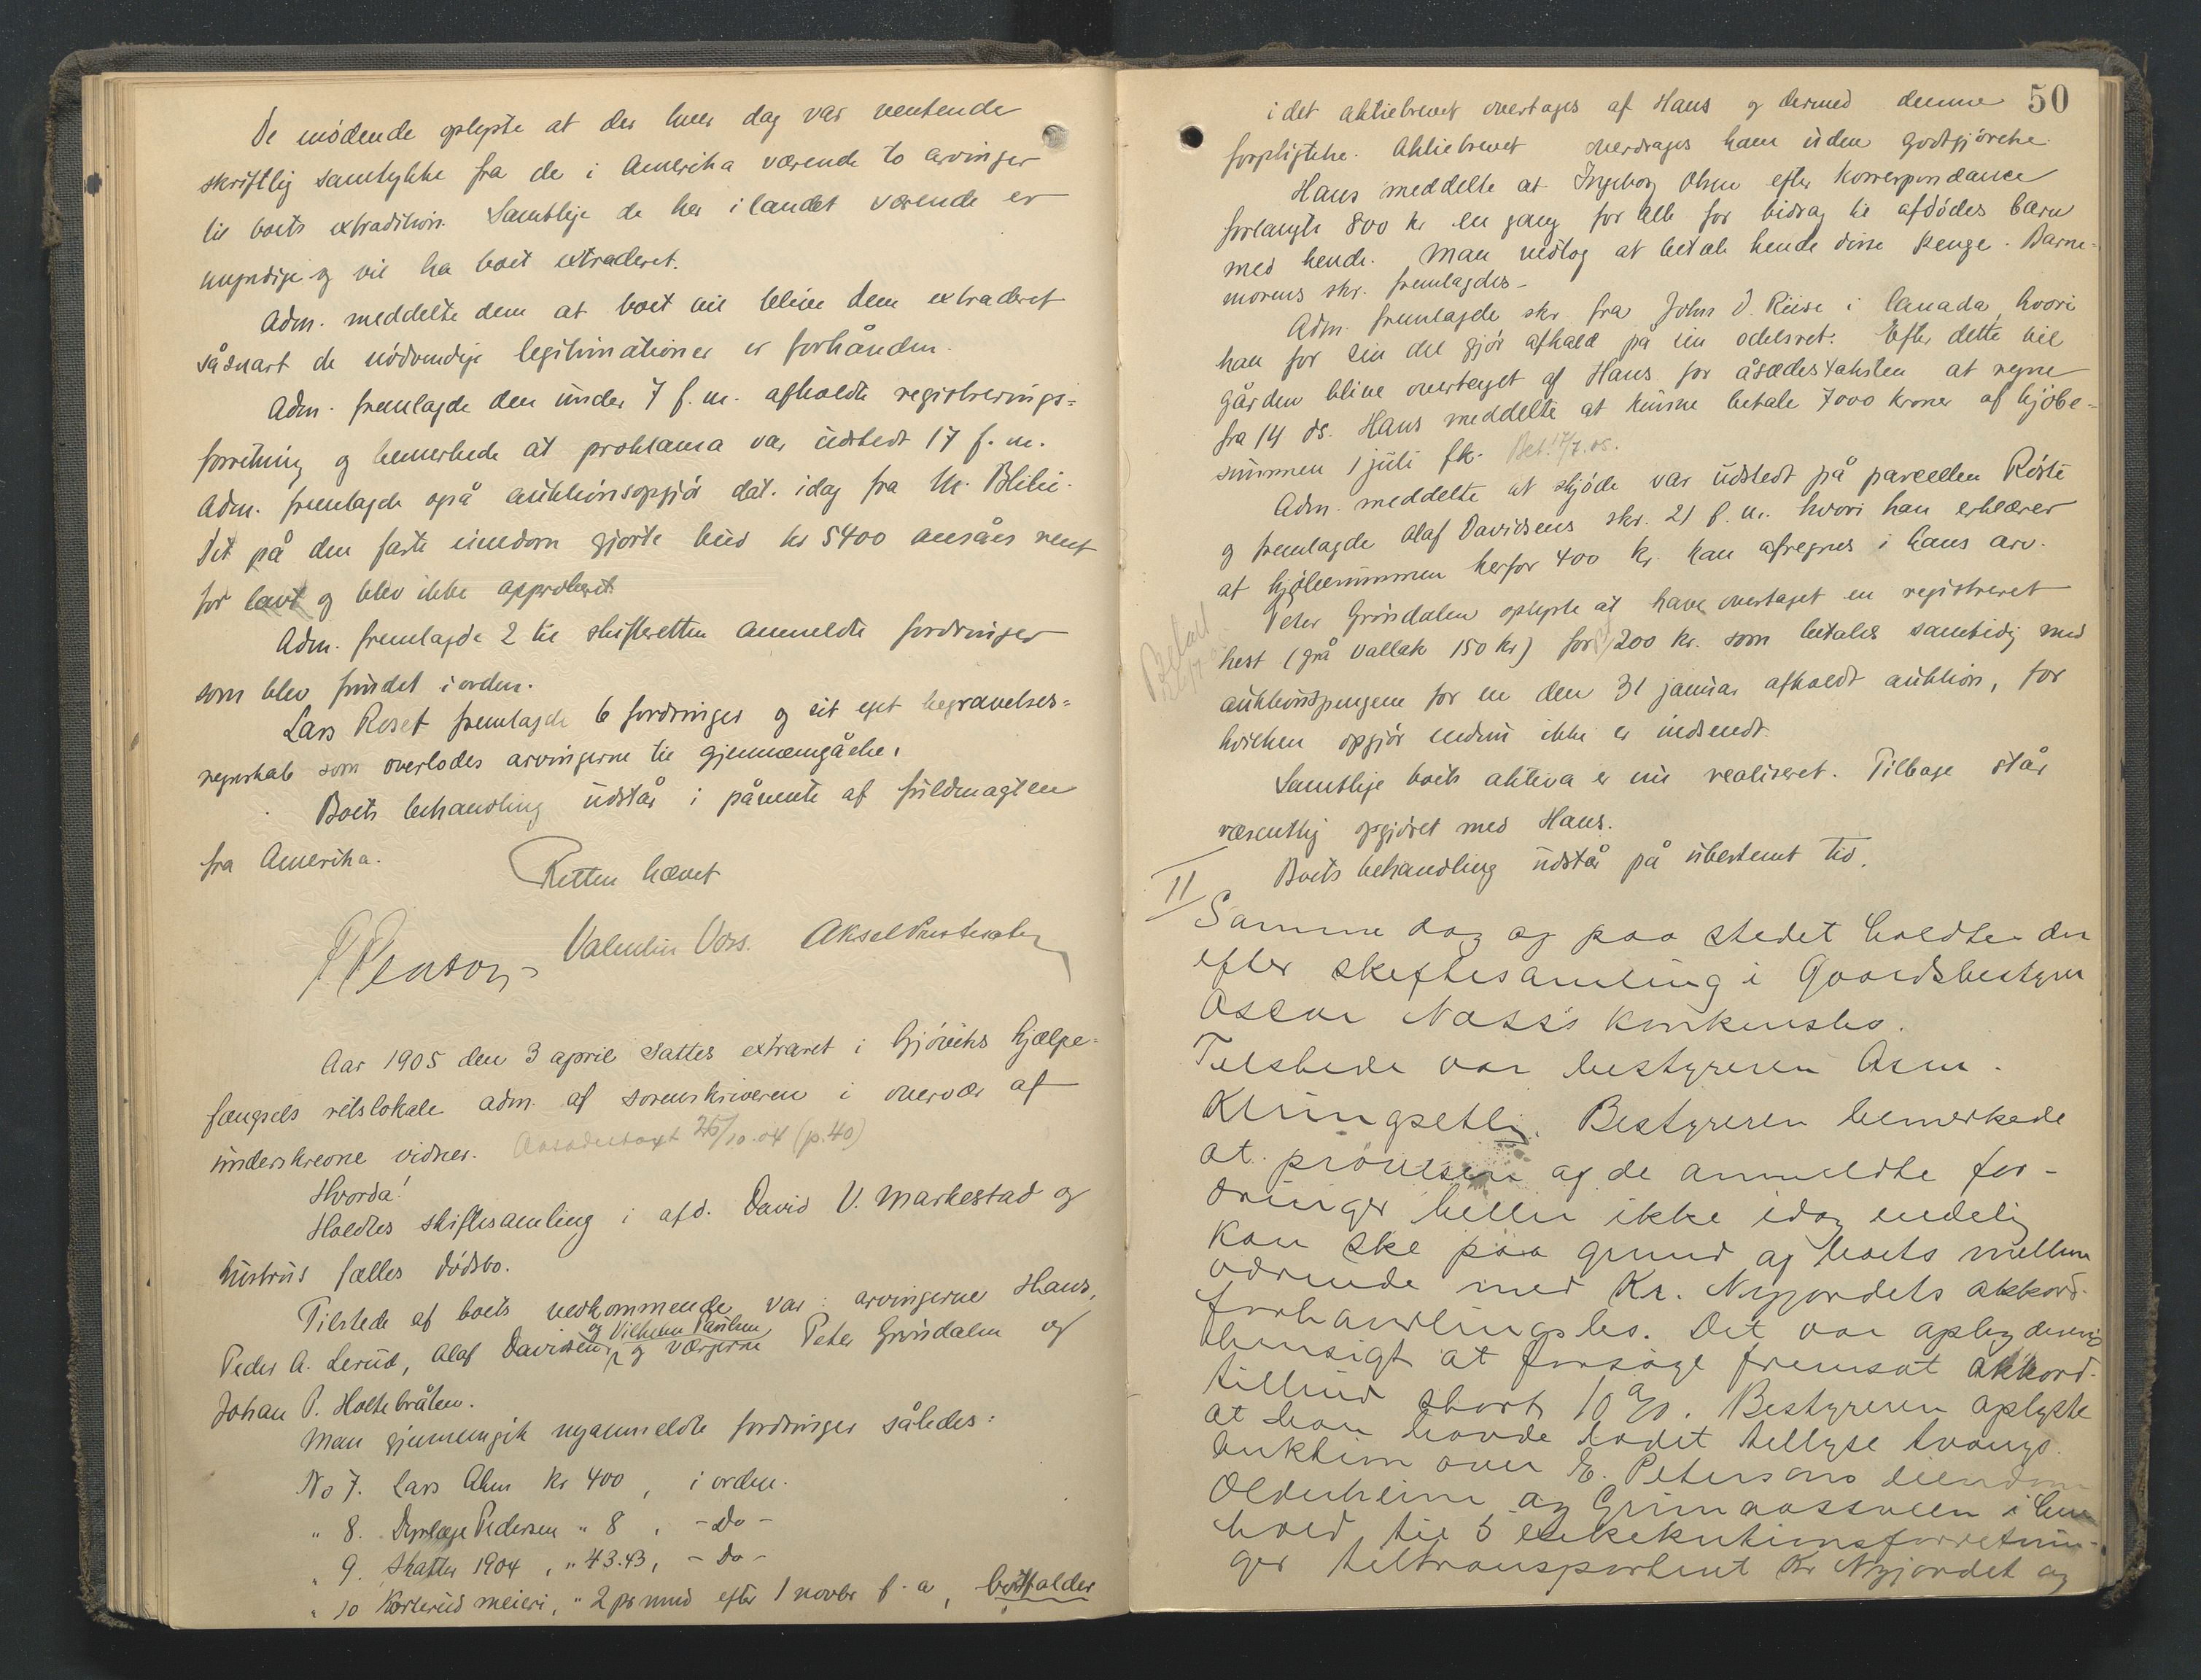 De mödende oplyste at der hver dag var ventende
skriftlig samtykke fra de i Amerika værende to arvinger
til boets extradition. Samtlige de her i landet værende er
myndige og vil ha boet extraderet.
Adm. meddelte dem at boet vil blive dem extraderet
såsnart de nödvendige legitimationer er forhånden.
Adm. fremlagde den under 7 f.m. afholdte registrerings-
forretning og bemerkede at proklama var udstedt 17 f.m.
Adm. fremlagde også auktionsopgjör dat. idag fra
Det på den faste eiendom gjorte bud kr 5400 ansåes
for lavt og blev ikke approberet.
Adm. fremlagde 2 til skifteretten anmeldte fordringer
som blev fundet i orden.
Lars Roset fremlagde 6 fordringer og sit eget begravelses-
regnskab som overlodes arvingerne til gjennemgåelse.
Boets behandling udstår i påvente af fuldmagten
fra Amerika.
Retten hævet
Valentin Voss. Aksel
Aar 1905 den 3 april sattes extraret i Gjöviks hjælpe-
fængsels retslokale adm. af sorenskriveren i overvær af
underskrevne vidner. Aasædestaxt 26/10.04 (p.40)
Hvorda!
Holdtes skiftesamling i afd. David V. Markestad og
hustrus fælles dödsbo.
Tilstede af boets vedkommende var: arvingerne Hans,
og Vilhelm Paulsen
Peder A. Lerud, Olaf Davidsen, og værgerne Peter Gründalen og
Johan P. Holtebråten.
Man gjennemgik nyanmeldte fordringer således:
No 7. Lars Alm kr 400, i orden.
" 8. Dyrlæge Pedersen " 8, - Do -
" 9. Skatter 1904, " 43.43, - Do -
" 10 meieri, " 2 pr mnd efter 1 novbr f.a, bortfalder
50
idet aktiebrevet overtages af Hans og dermed denne
forpligtelse. Aktiebrevet overdrages ham uden godtgjörelse.
Hans meddelte at Ingeborg Olsen efter korrespondance
forlangte 800 kr en gang for alle for bidrag til afdödes barn
med hende. Man vedtog at betale hende disse penge. Barne-
morens skr. fremlagdes -
Adm. fremlagde skr. fra John D. Riise i Canada, hvori
han for sin del gjör afkald på sin odelsret. Efter dette vil
gården blive overtaget af Hans for åsædestaksten at regne
fra 14 ds. Hans meddelte at kunne betale 7000 kroner af kjöbe-
summen 1 juli fk. Bet. 17/7.05.
Adm. meddelte at skjöde var udstedt på parcellen
og fremlagde Olaf Davidsens skr. 21 f.m. hvori han erklærer
at kjöbesummen herfor 400 kr. kan afregnes i hans arv.
Peter Gründalen oplyste at have overtaget en registreret
hest (grå vallak 150 kr) for 200 kr. som betales samtidig med
Betalt
auktionspengene for en den 31 januar afholdt auktion, for
hvilken opgjör endnu ikke er indsendt.
Samtlige boets aktiva er nu realiseret. Tilbage står
væsentlig opgjöret med Hans.
Boets behandling udstår på ubestemt tid.
II
Samme dag og paa stedet holdtes der
efter skiftesamling i Gaardsbestyrer
Oscar Næss's konkursbo.
Tilstede var bestyreren Adm.
Klüngseth. Bestyreren bemerkede
at prövelsen af de anmeldte for-
dringer heller ikke idag endelig
kan ske paa grund af boets mellem
værende med Kr. Nygjordets akkord-
forhandlingsbo. Det var oplyst
hensigt at forsöge fremsat akkord-
tilbud stort 10 %. Bestyreren oplyste
at han havde ladet tillyse tvangs-
auktion over E. Petersons eiendom
Olderheim og Grimaassveen i hen-
hold til 5 eksekutionsforretnin-
ger tiltransporteret Kr Nygjordet og